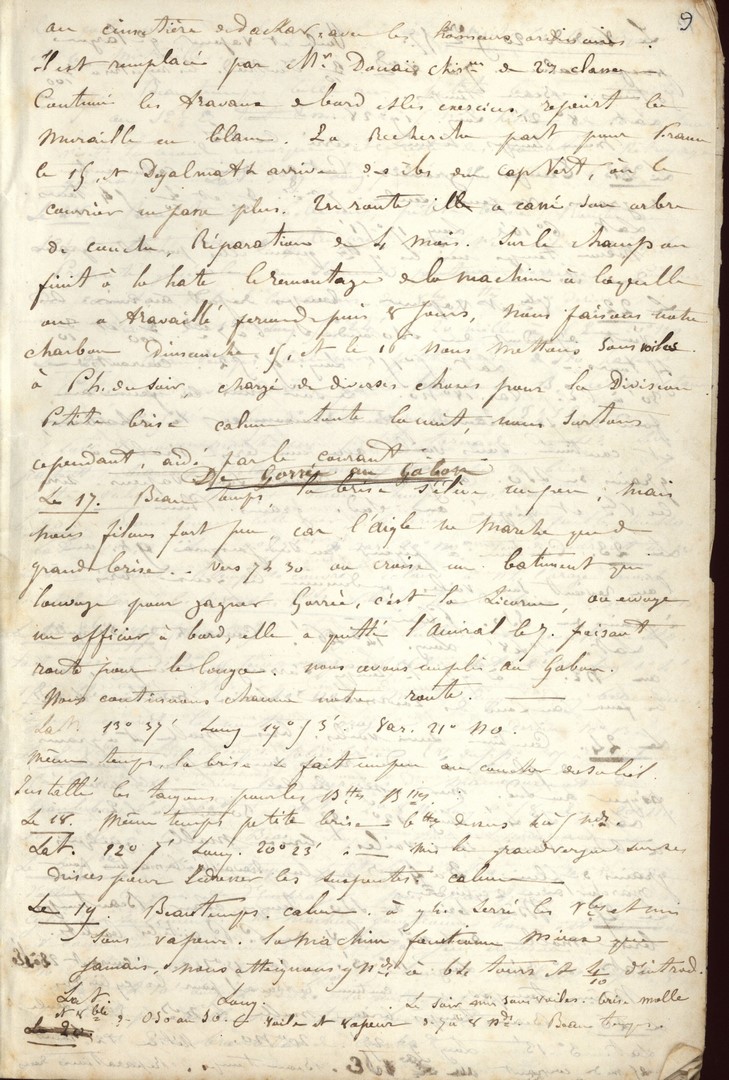 9
au cimetière de Dackar, avec les honneurs ordinaires.
Il est remplacé par Mr Douais chirien de 2e classe
Continué les travaux de bord et les exercices, repeint la
muraille en blanc. La Recherche part pour France
le 15, et Dyalmath arrive des îles du cap Vert, où le
courrier ne passe plus. En route il a cassé son arbre
de couche, Réparation de 4 mois. Sur le champ on
finit à la hate le remontage de la machine à laquelle
on a travaillé depuis 8 jours, Nous faisons notre
charbon Dimanche 15, et le 16 Nous mettons sous voiles
à h. du soir, chargé de diverses choses pour la Division
Petite brise calme toute la nuit, nous sortons
cependant, aidé par le courant.
De Gorrée au Gabon
Le 17. Beau temps, la brise s'élève un peu, mais
nous filons fort peu, car l'aigle ne marche que de
grande brise. Vers 7h 30 on croise un bâtiment qui
louvoye pour gagner Gorrée, c'est la Licorne, on envoye
un officier à bord, elle a quitté l'amiral le 7. faisant
route pour le Congo. nous avons au Gabon.
Nous continuons chacun notre route.
Lat. 13° 37' Long 19° 53'. Var. 21° NO.
Même temps, la brise se fait un peu au coucher du soleil.
Installé les pour les Btts Btles.
Le 18. Même temps petite brise btte dessus 4 à 5 nds.
Lat. 12° 7' Long. 20° 23'. mis la grand vergue sur ses
drisses pour les suspentes calme
Le 19. Beau temps. calme. à 9h serré les vles et mis
sous vapeur. la machine fonctionne mieux que
jamais, nous atteignons 9 nds à 64 tours et 4/10 d'introd.
Lat. Long. Le soir mis sous voiles. brise molle
NO voile et vapeur de 7 à 8 nds. Beau temps
Le 20